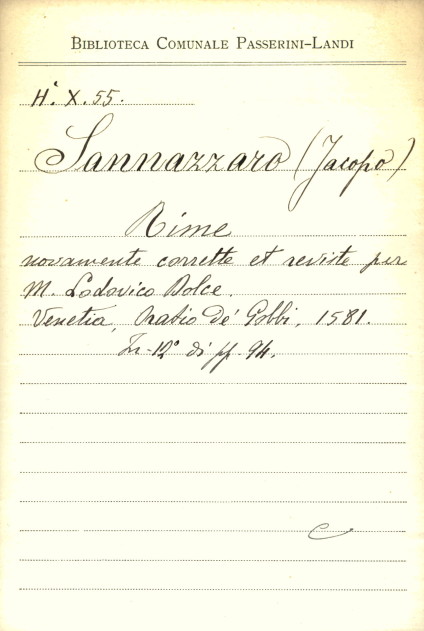 BIBLIOTECA COMUNALE PASSERINI-LANDI
H.° X. 55.
Sannazzaro (Jacopo)
Rime
novamente corrette et reviste per
M. Lodovico Dolce.
Venetia, Fratio de' Gobbi, 1581.
In-12° di pp. 94.
C